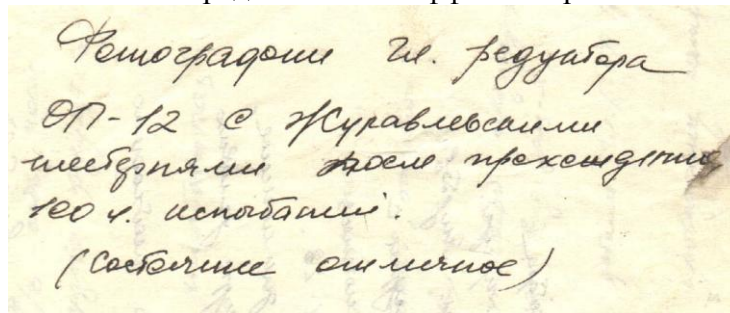 Фотографии гл. редуктора
ОП-12 с Журавлевскими
шестернями после прохождения
100 ч. испытаний.
(состояние отличное)